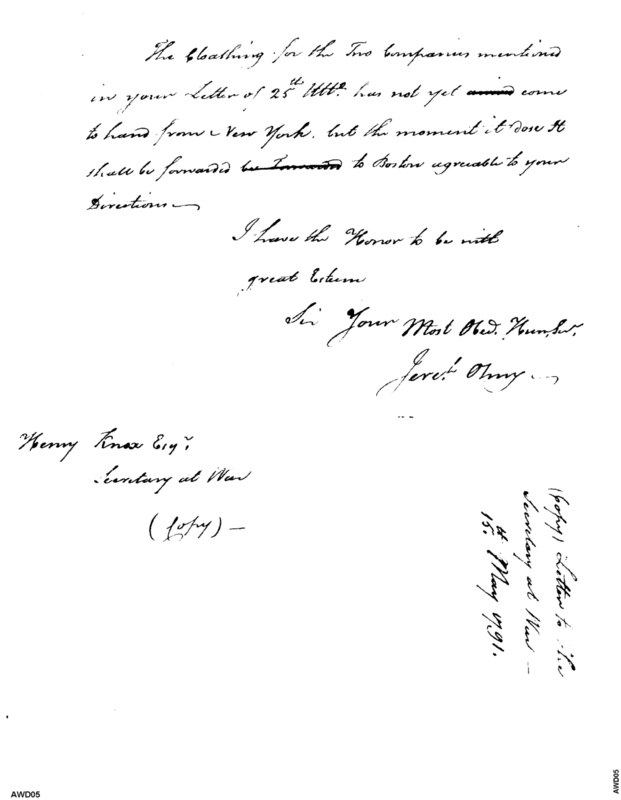 The Cloathing for the Two Companies mentioned
in your Letter of 25th Ulto. has not yet arrived come
to hand from New York, but the moment it dose It
shall be forwarded be Forwarded to Boston agreable to your
Directions—
I have the Honor to be with
great Esteem
Sir Your Most Obed. Hum. Sert.
Jereh. Olney
Henry Knox Esqr.
Secretary at War
(Copy) —
(Copy) Letter to The
Secretary at War —
15th. May 1791.
AWD05
AWD05